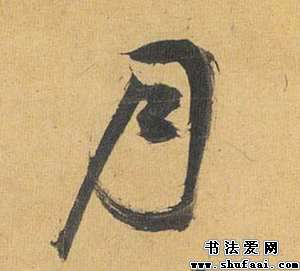 月
书法爱网
www.shufaai.com